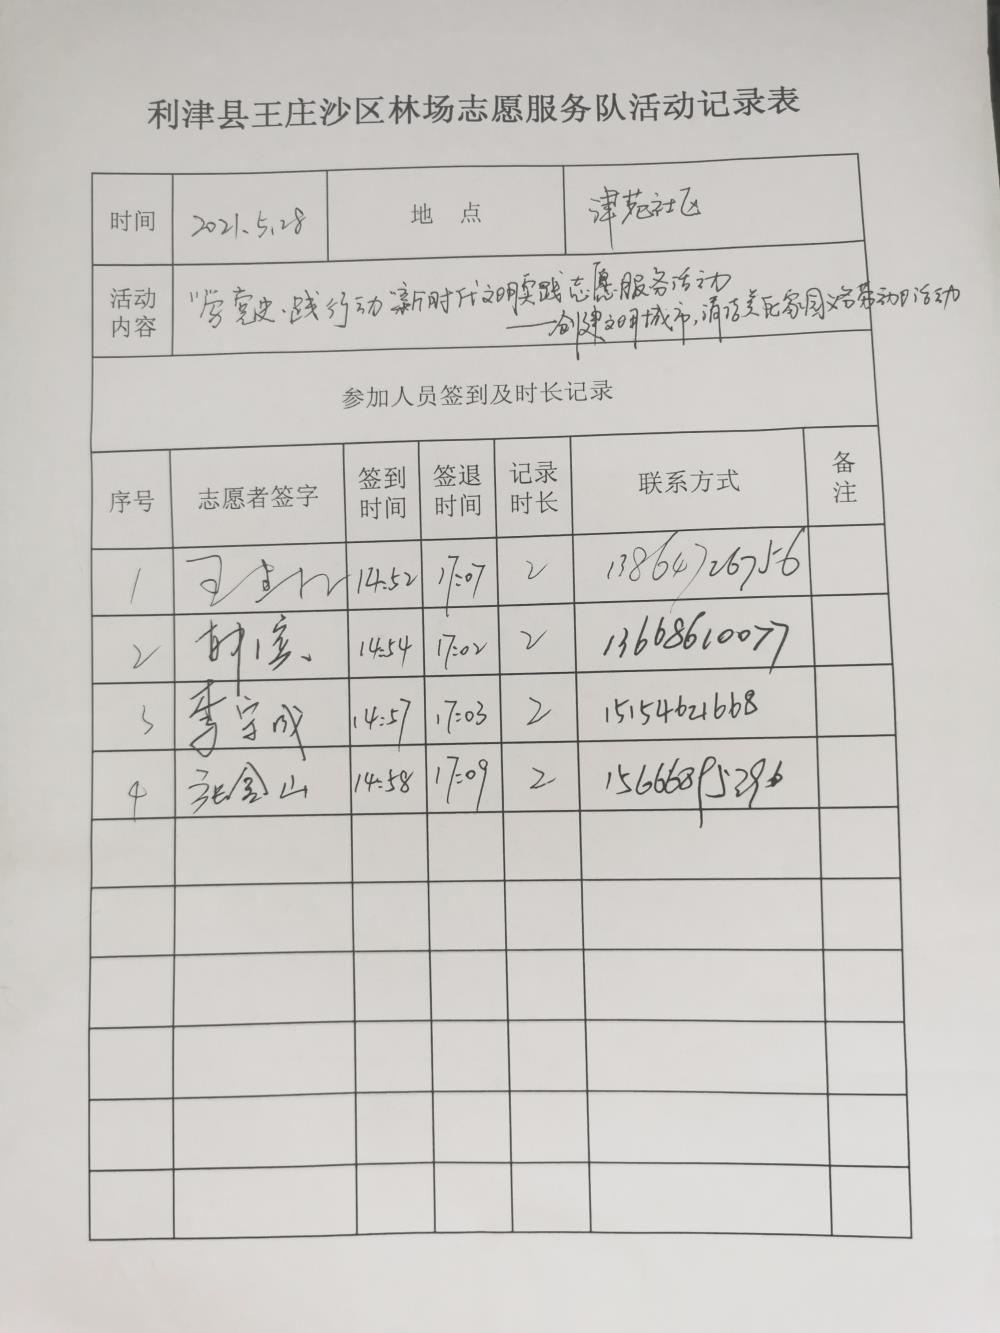 利津县王庄沙区林场志愿服务队活动记录表
时间 2021.5.28 地 点 津苑社区
活动内容 “学党史·践行动 新时代文明实践志愿服务活动
——创建文明城市，清洁美化家园义务劳动日活动
参加人员签到及时长记录
序号 志愿者签字 签到时间 签退时间 记录时长 联系方式 备注
1 王 14:52 17:07 2 13864726756
2 韩滨 14:54 17:02 2 13668610077
3 李宗成 14:57 17:03 2 15154621668
4 张金山 14:58 17:09 2 15666895296